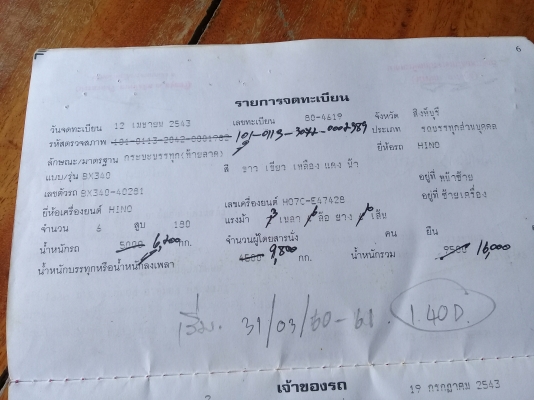 6
รายการจดทะเบียน
วันจดทะเบียน 12 เมษายน 2543 เลขทะเบียน 80-4619 จังหวัด สิงห์บุรี
รหัสตรวจสภาพ 101-0113-3042-0002989 ประเภท รถบรรทุกส่วนบุคคล
ลักษณะ/มาตรฐาน กระบะบรรทุก(ท้ายลาด) ยี่ห้อรถ HINO
แบบ/รุ่น BX340 สี ขาว เขียว เหลือง แดง ฟ้า
เลขตัวรถ BX340-40281 อยู่ที่ หน้าซ้าย
ยี่ห้อเครื่องยนต์ HINO เลขเครื่องยนต์ H07C-E47428 อยู่ที่ ซ้ายเครื่อง
จำนวน 6 สูบ 190 แรงม้า 3 เพลา ล้อ ยาง เส้น
น้ำหนักรถ 5000 6,200 กก. จำนวนผู้โดยสารนั่ง คน ยืน
น้ำหนักบรรทุกหรือน้ำหนักลงเพลา 4500 9,800 กก. น้ำหนักรวม 9500 16,000
เริ่ม. 31/03/60-61 1.40 D.
เจ้าของรถ
19 กรกฎาคม 2543